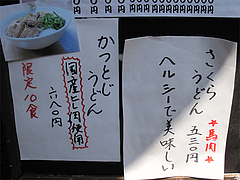 さくら
*馬肉*
うどん 五三〇円
ヘルシーで美味しい
かつとじ
うどん
国産ヒレ肉使用
六八〇円
限定10食